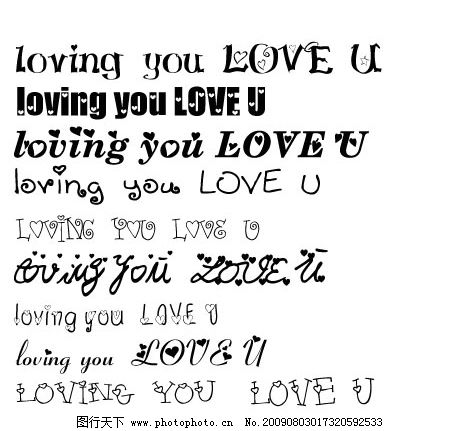 loving you LOVE U
loving you LOVE U
loving you LOVE U
loving you LOVE U
LOVING YOU LOVE U
loving you LOVE U
loving you LOVE U
loving you LOVE U
LOVING YOU LOVE U
图行天下 www.photophoto.cn No.20090803017320592533